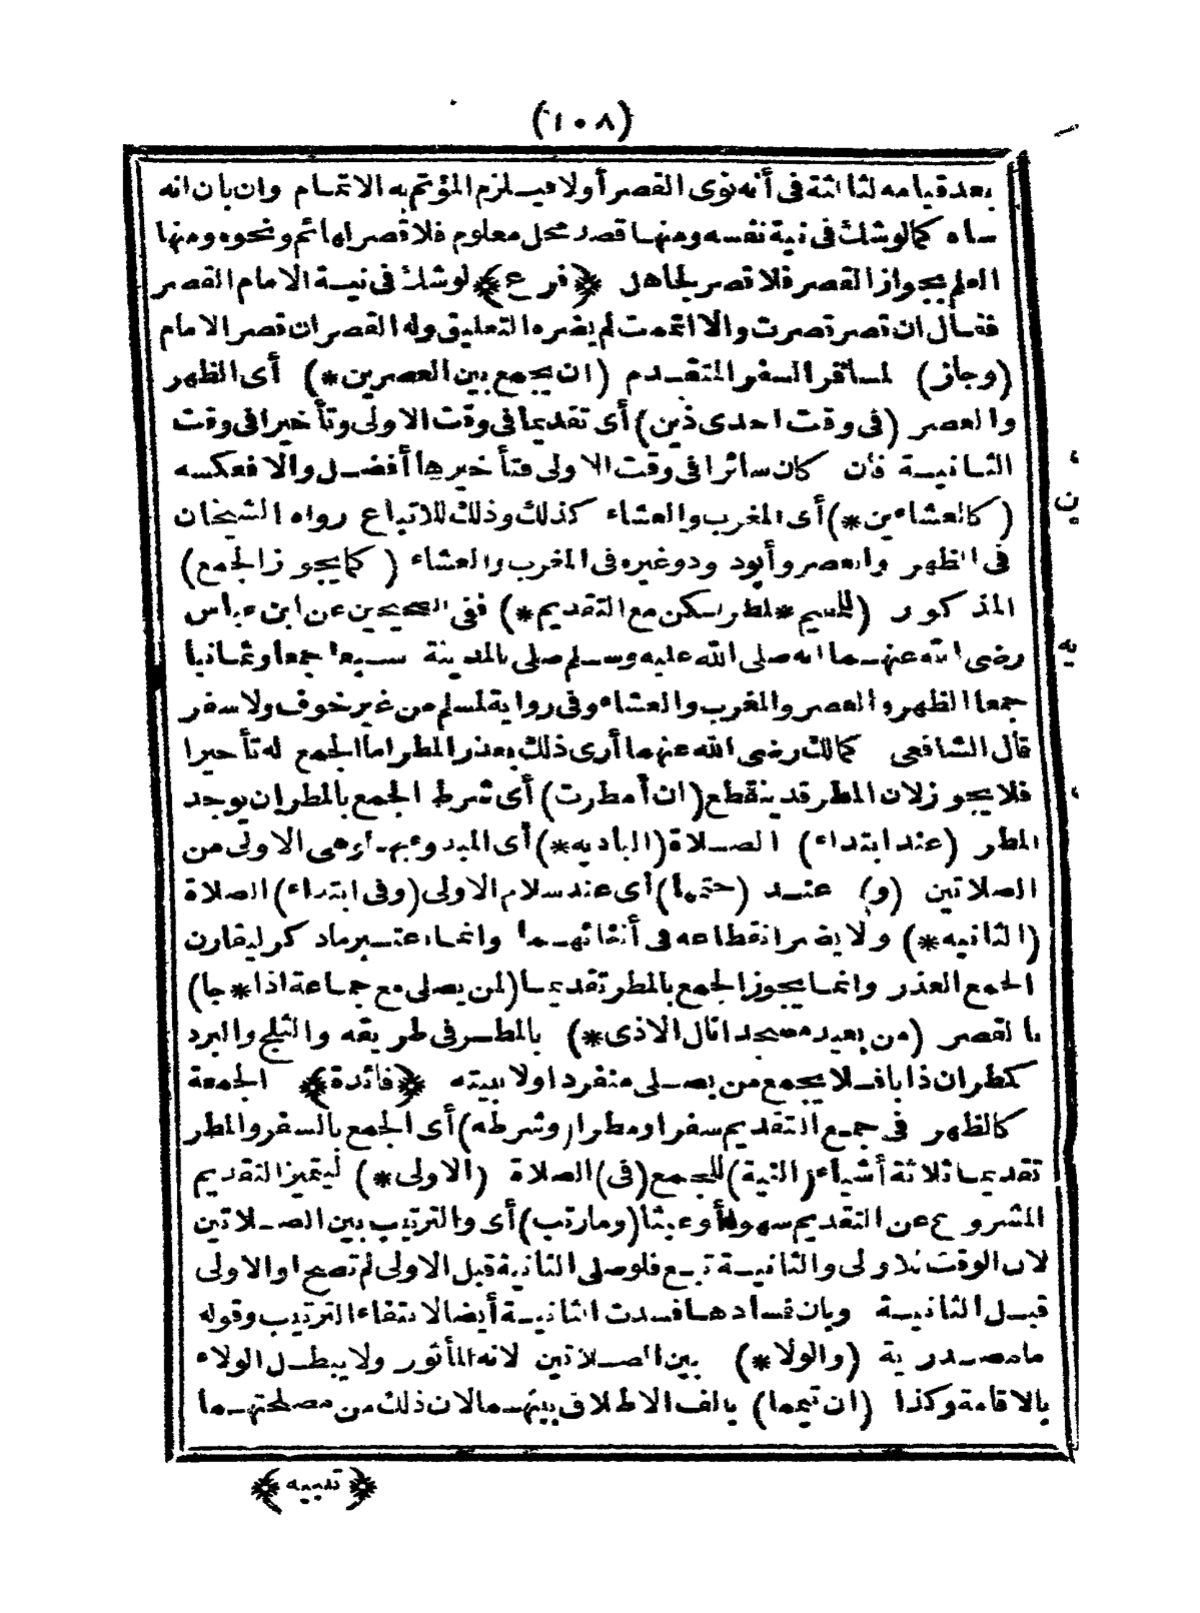 (١٠٨)
بعد قيامه لثالثة في أنه نوى القصر أولا فيلزم المؤتم به الاتمام وان بان انه
ساه كما لو شك في نية نفسه ومنها قصد محل معلوم فلا قصر لهائم ونحوه ومنها
العلم بجواز القصر فلا قصر لجاهل ﴿فرع﴾ لو شك في نية الامام القصر
فقال ان قصر قصرت والا اتممت لم يضره التعليق وله القصر ان قصر الامام
(وجاز) لمسافر السفر المتقدم (ان يجمع بين العصرين*) أى الظهر
والعصر (في وقت احدى ذين) أى تقديما في وقت الاولى وتأخيرا في وقت
الثانية فان كان سائرا في وقت الاولى فتأخيرها أفضل والا فعكسه
(كالعشاءين*) أى المغرب والعشاء كذلك وذلك للاتباع رواه الشيخان
في الظهر والعصر وأبو داود وغيره في المغرب والعشاء (كما يجوز الجمع)
المذكور (للمقيم*لمطر لكن مع التقديم*) ففي الصحيحين عن ابن عباس
رضى الله عنهما انه صلى الله عليه وسلم صلى بالمدينة سبعا جمعا وثمانيا
جمعا الظهر والعصر والمغرب والعشاء وفي رواية لمسلم من غير خوف ولا سفر
قال الشافعى كمالك رضى الله عنهما أرى ذلك بعذر المطر اما الجمع له تأخيرا
فلا يجوز لان المطر قد ينقطع (ان أمطرت) أى شرط الجمع بالمطر ان يوجد
المطر (عند ابتداء) الصلاة (الباديه*) أى المبدوء بها وهى الاولى من
الصلاتين (و) عند (ختمها) أى عند سلام الاولى (وفي ابتداء) الصلاة
(الثانيه*) ولا يضر انقطاعه في أثنائهما وانما اعتبر ما ذكر ليقارن
الجمع العذر وانما يجوز الجمع بالمطر تقديما (لمن يصلى مع جماعة اذا*جا)
بالقصر (من بعيد مسجدا نال الاذى*) بالمطر في طريقه والثلج والبرد
كمطر ان ذابا فلا يجمع من يصلى منفردا ولا ببيته ﴿فائدة﴾ الجمعة
كالظهر في جمع التقديم سفرا ومطرا (وشرطه) أى الجمع بالسفر والمطر
تقديما ثلاثة أشياء (النية) للجمع (في) الصلاة (الاولى*) ليتميز التقديم
المشروع عن التقديم سهوا أو عبثا (وما رتب) أى والترتيب بين الصلاتين
لان الوقت للاولى والثانية تبع فلو صلى الثانية قبل الاولى لم تصح او الاولى
قبل الثانية وبان فسادها فسدت الثانية أيضا لانتفاء الترتيب وقوله
ما مصدرية (والولا*) بين الصلاتين لانه المأثور ولا يبطل الولاء
بالاقامة وكذا (ان تيمما) بالف الاطلاق بينهما لان ذلك من مصلحتهما
﴿تنبيه﴾